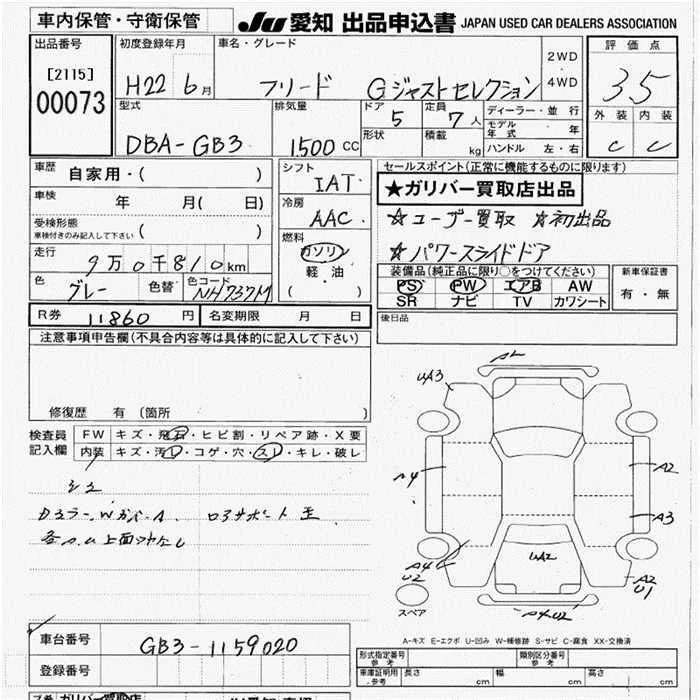 車内保管・守衛保管
JU 愛知 出品申込書 JAPAN USED CAR DEALERS ASSOCIATION
出品番号
[2115]
00073
初度登録年月
H22 6月
車名・グレード
フリード Gジャストセレクション
2WD
・
4WD
評価点
3.5
外装 内装
C C
型式
DBA-GB3
排気量
1500 CC
ドア
5
定員
7人
形状
積載
kg
ディーラー・並行
モデル年式 ・ 年
ハンドル 左・右
車歴
自家用・( )
車検
年 月( 日)
受検形態
車検付きのみ記入して下さい ( )
走行
9万0千810km
色
グレー
色替
色コード
NH737M
シフト
IAT
冷房
AAC
燃料
ガソリン
軽・油
( )
セールスポイント(正常に機能するものに限ります)
★ガリバー買取店出品
☆ユーザー買取 ☆初出品
☆パワースライドドア
装備品(純正品に限り○をつけてください)
PS PW エアB AW
SR ナビ TV カワシート
新車保証書
有・無
R券 11860 円
名変期限 月 日
後日品
注意事項申告欄(不具合内容等は具体的に記入して下さい)
修復歴 有 (箇所 )
検査員
記入欄
FW キズ・飛石・ヒビ割・リペア跡・X要
内装 キズ・汚レ・コゲ・穴・スレ・キレ・破レ
A2
UA3
A4
A2
A3
UA2
A4
U2
A2
U1
A4U2
スペア
A-キズ E-エクボ U-凹み W-補修跡 S-サビ C-腐食 XX-交換済
車台番号
GB3-1159020
登録番号
形式指定番号
参考
類別区分番号
参考
車庫証明用
参考
長さ cm 幅 cm 高さ cm
ガリバー買取店